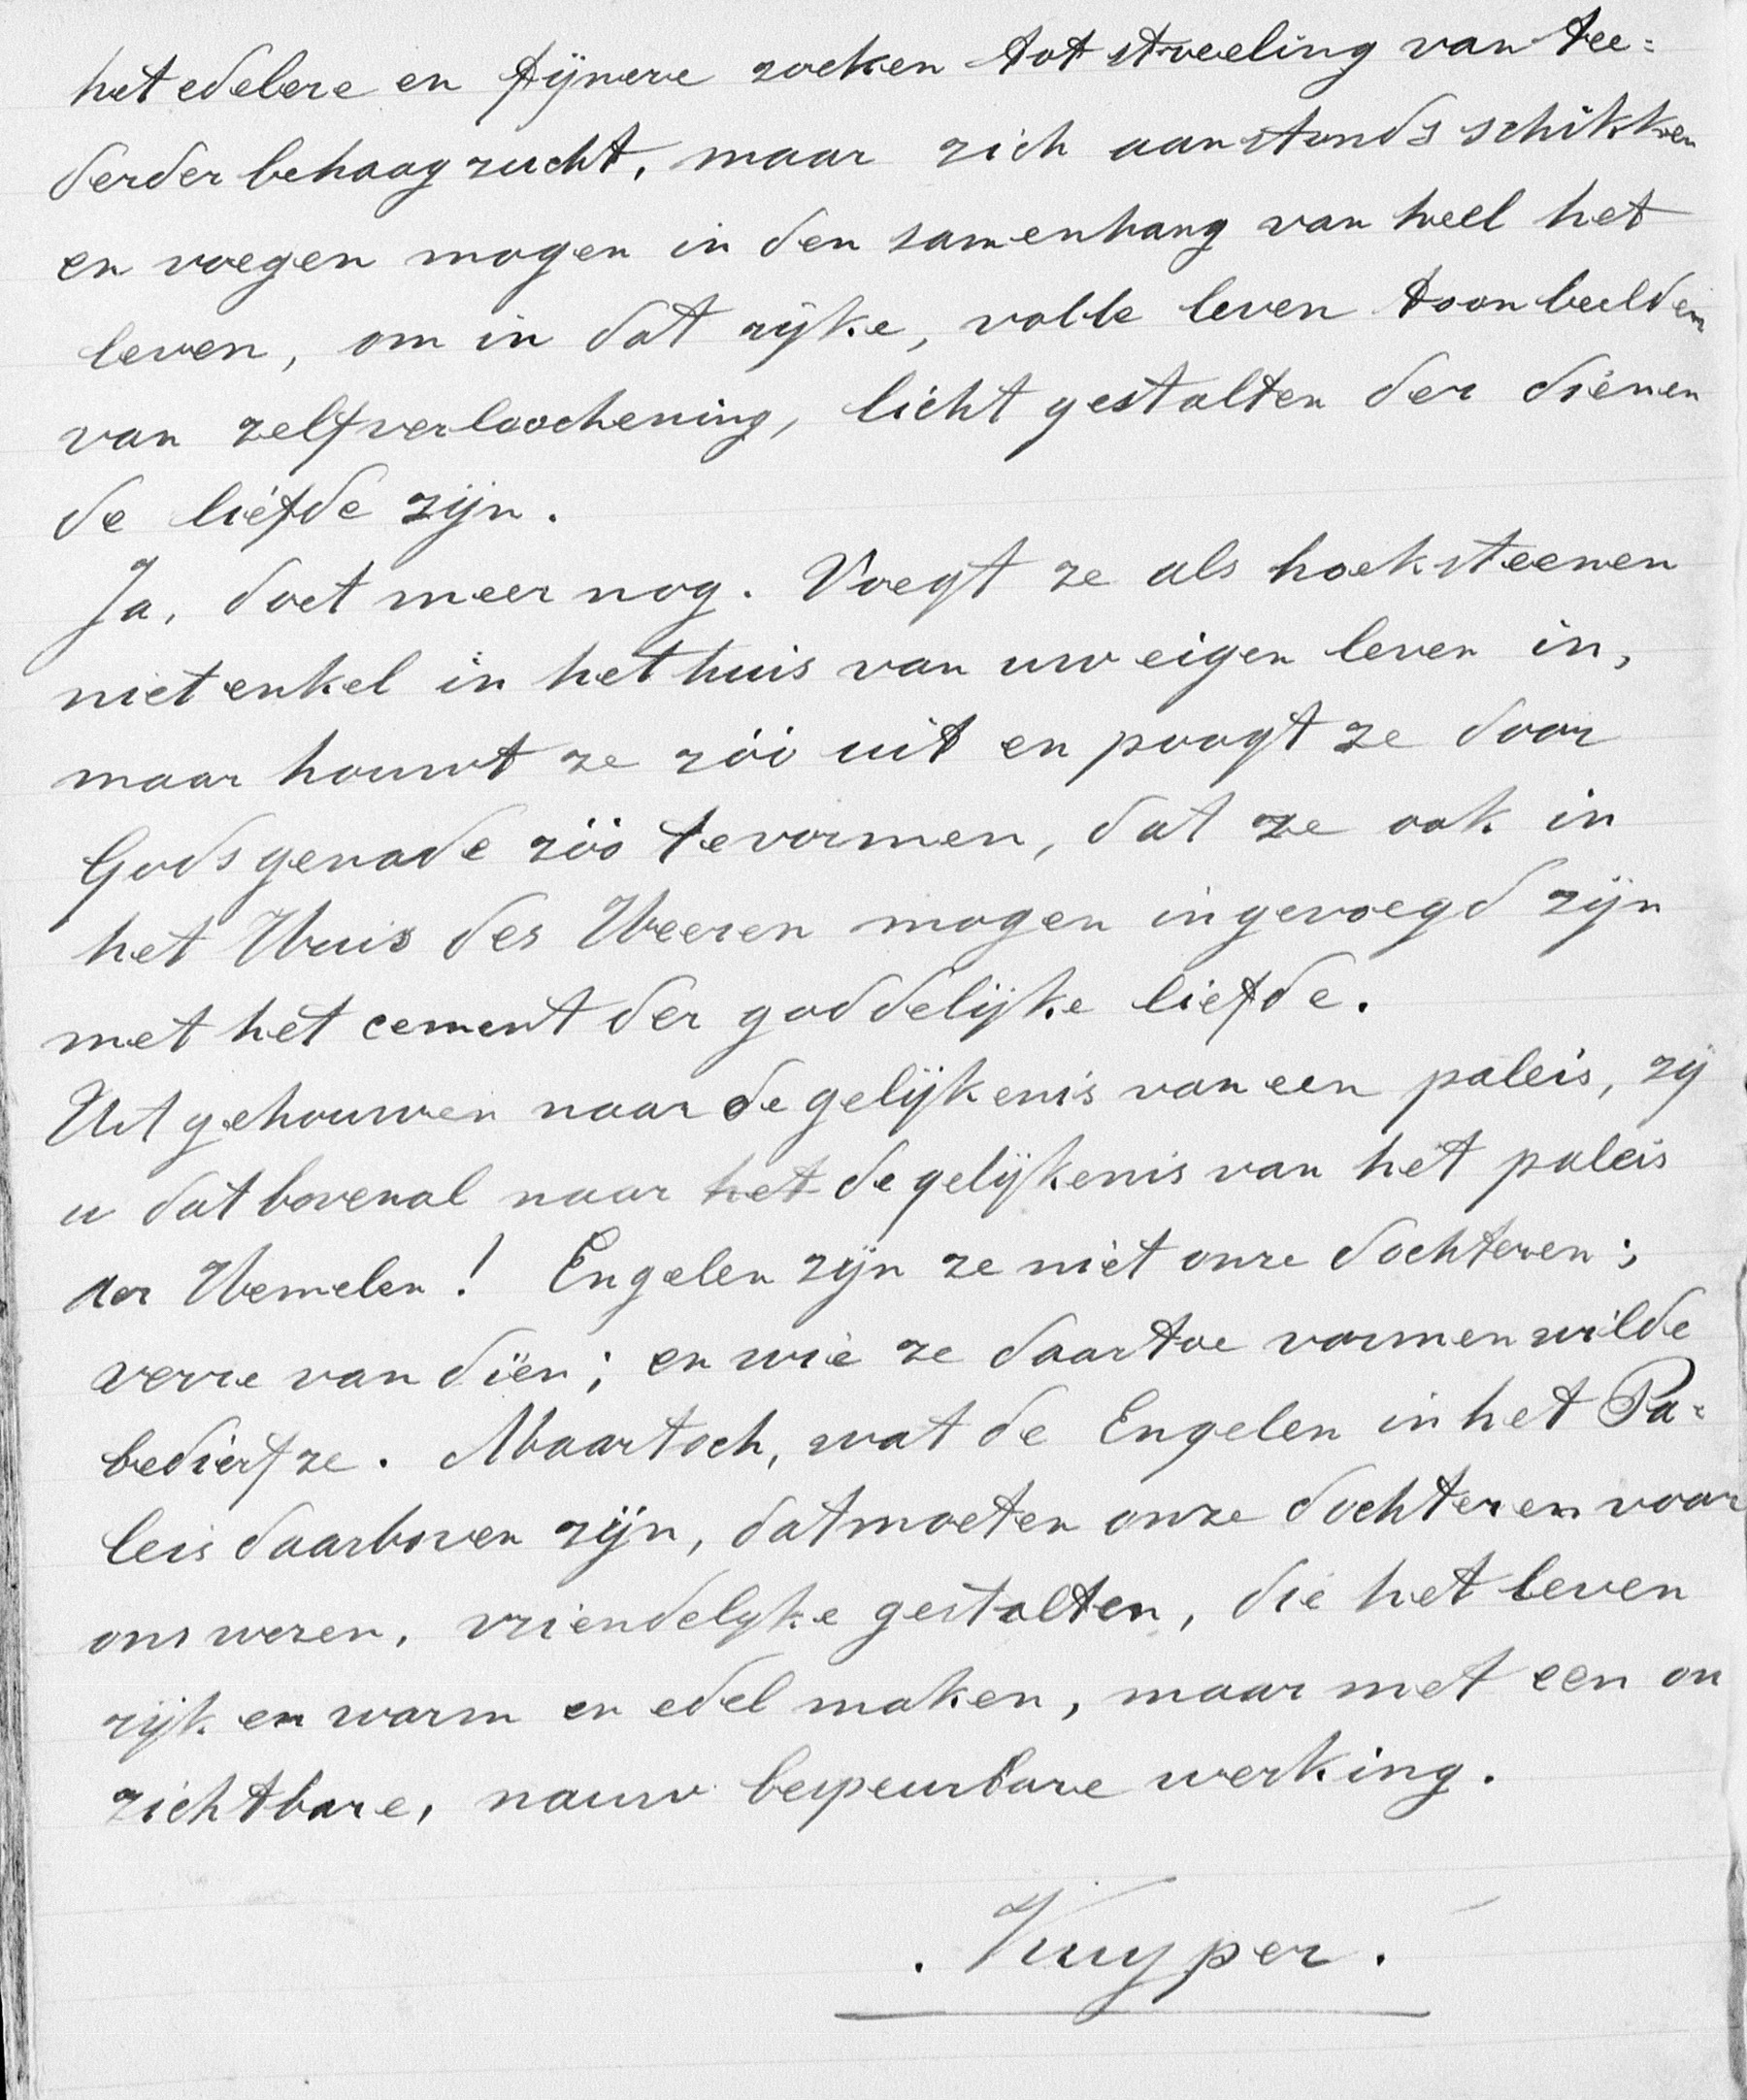 het edelere en fijnere zoeken tot streeling van tee=
derder behaagzucht, maar zich aanstonds schikken
en voegen mogen in den samenhang van heel het
leven, om in dat rijke, volle leven toonbeelden
van zelfverloochening, licht gestalten der dienen
de liefde zijn.
Ja, doet meer nog. Voegt ze als hoeksteenen
niet enkel in het huis van uw eigen leven in,
maar houwt ze zóó uit en poogt ze door
Gods genade zóó te vormen, dat ze ook in
het Huis des Heeren mogen ingevoegd zijn
met het cement der goddelijke liefde.
Uitgehouwen naar de gelijkenis van een paleis, zij
u dat bovenal naar het de gelijkenis van het paleis
der Hemelen! Engelen zijn ze niet onze dochteren;
verre van dien; en wie ze daartoe vormen wilde
bedierf ze. Maar toch, wat de Engelen in het Pa=
leis daarboven zijn, dat moeten onze dochteren voor
ons wezen, vriendelijke gestalten, die het leven
rijk en warm en edel maken, maar met een on
zichtbare, nauw bespeurbare werking.
. Kuyper.